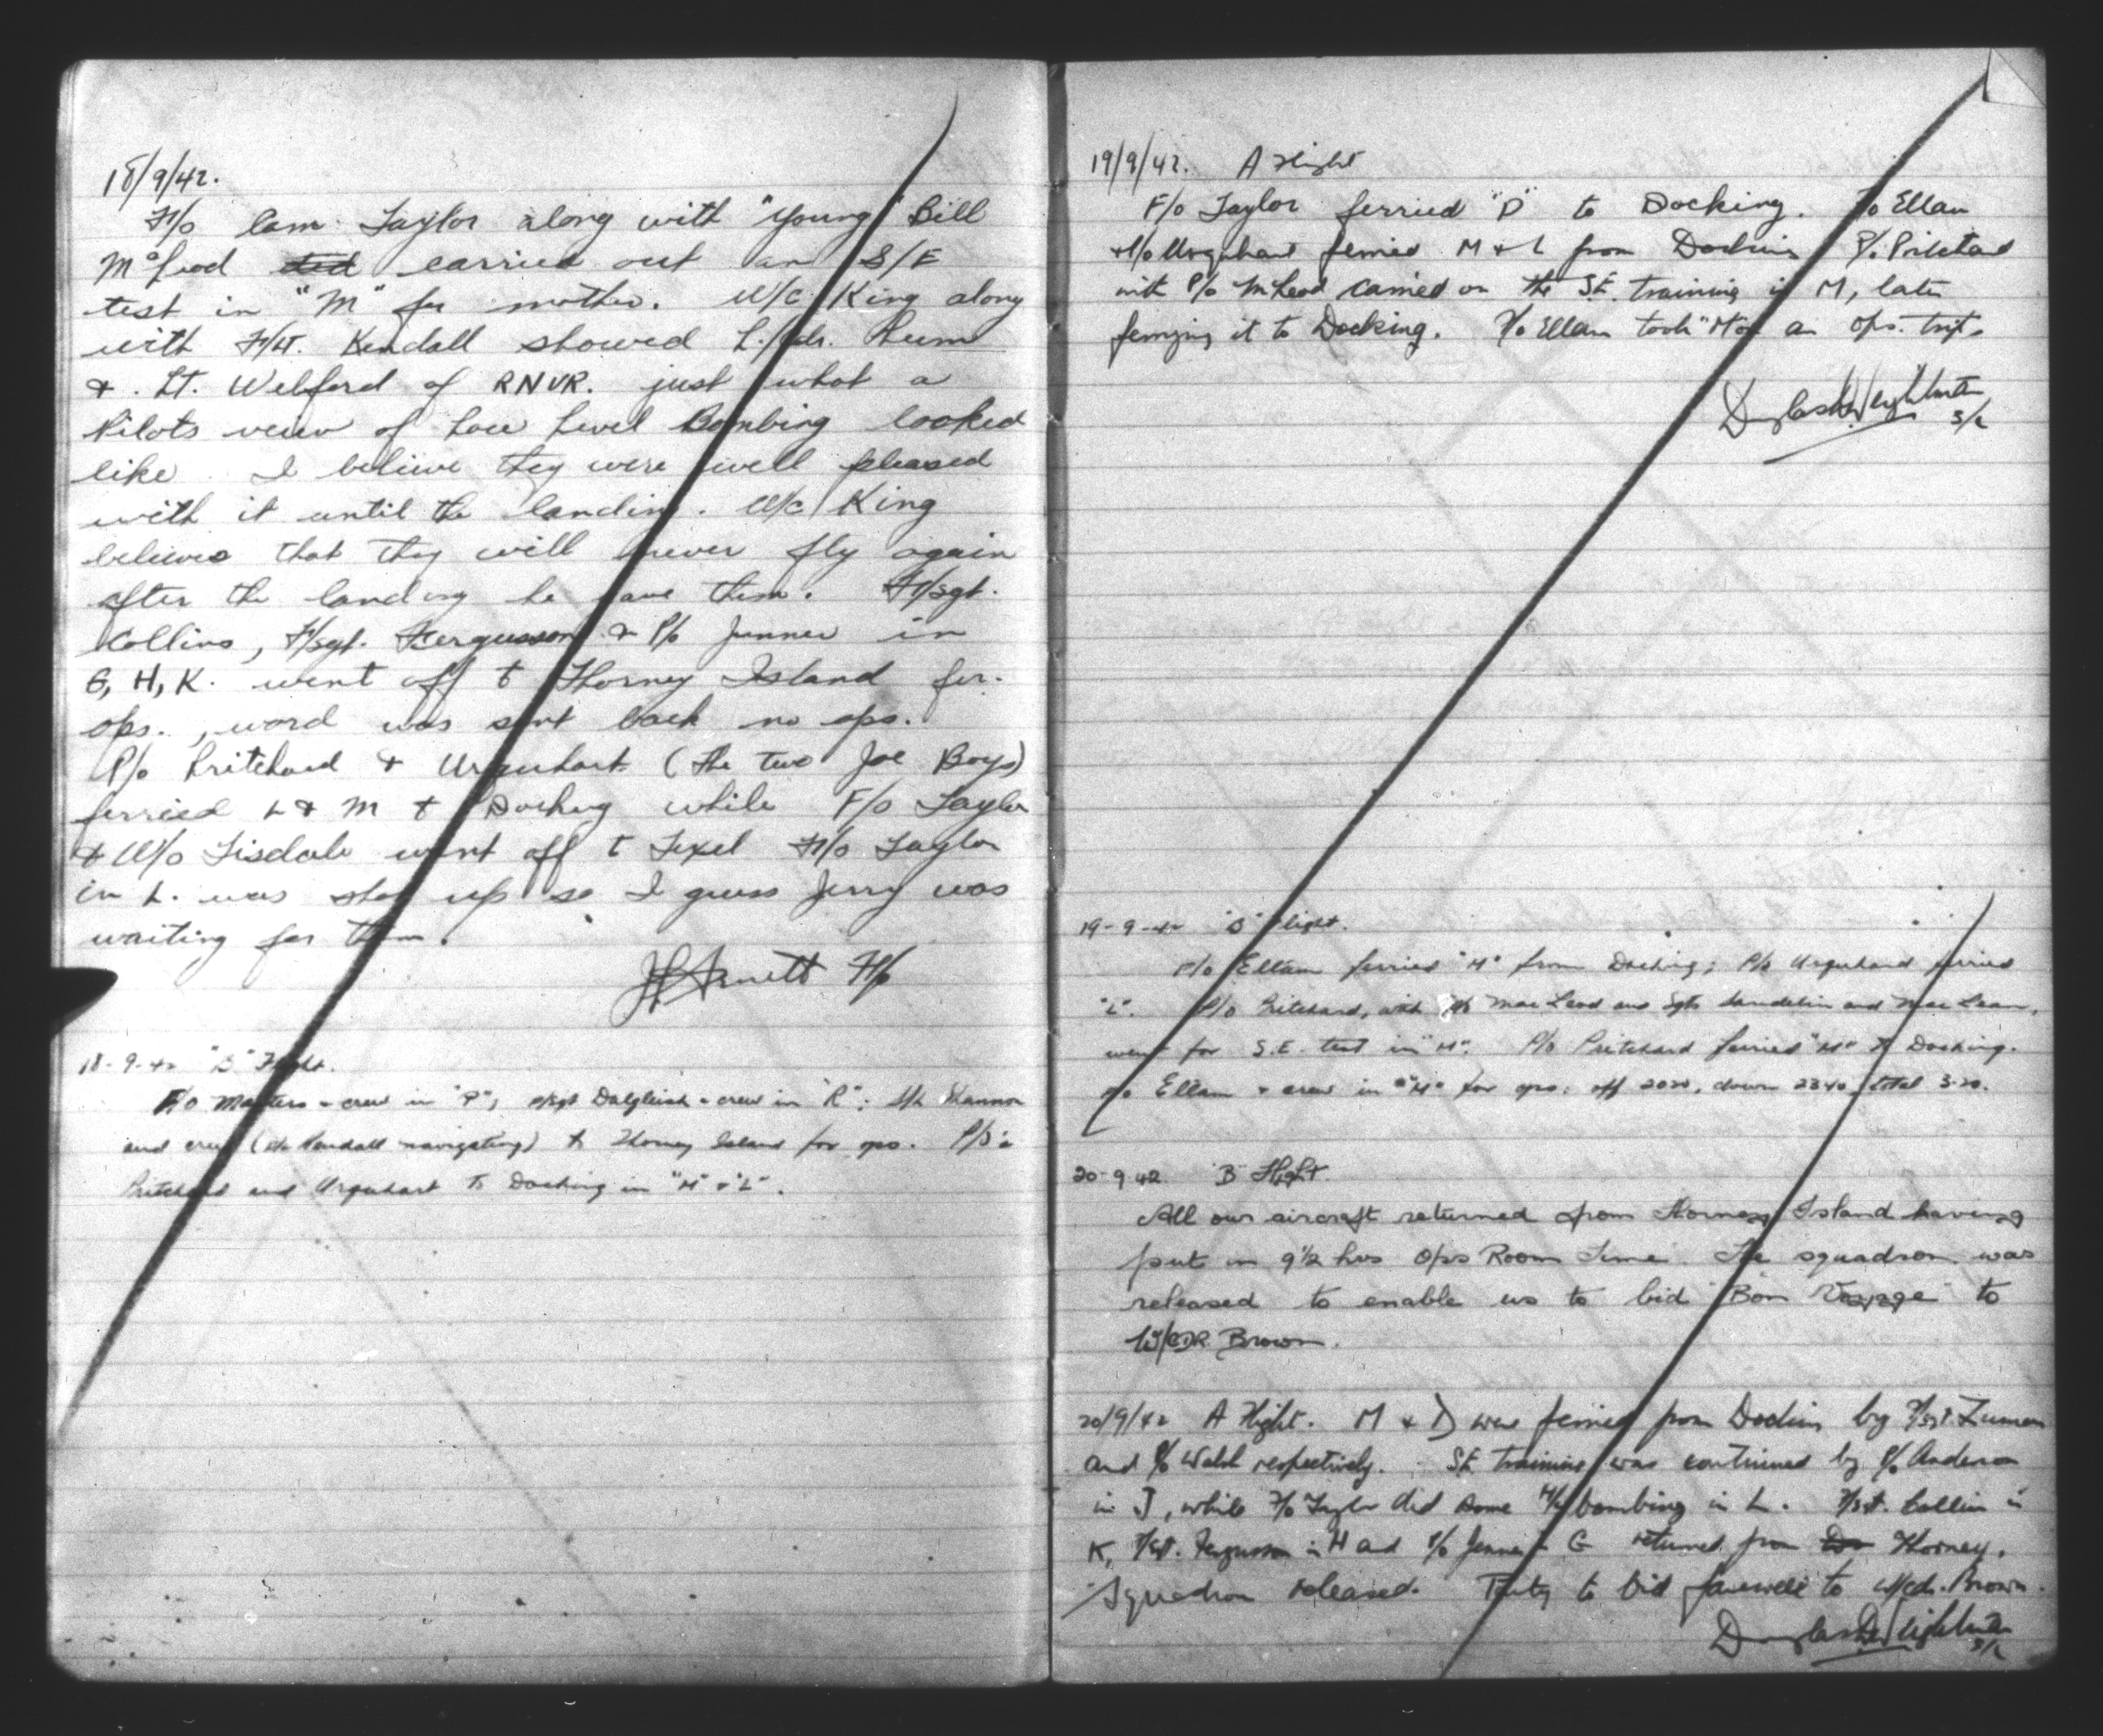 18/9/42.
F/O Cam Taylor along with "Young" Bill
McLeod did carried out an S/E
test in "M" for mother. W/C King along
with F/Lt. Kendall showed L./Cdr.
& Lt. Welford of RNVR. just what a
Pilots view of Low Level Bombing looked
like. I believe they were well pleased
with it until the landing. W/C King
believes that they will never fly again
after the landing he gave them. F/Sgt.
Collins, F/Sgt. Fergusson & P/O Jenner in
G, H, K. went off to Thorney Island for
ops., word was sent back no ops.
P/O Pritchard & Urquhart (the two Joe Boys)
ferried L & M to Docking while F/O Taylor
& W/O Tisdale went off to Texel F/O Taylor
in L. was shot up so I guess Jerry was
waiting for them.
Arnett F/O
18-9-42 "B" Flight.
P/O Masters & crew in "P"; F/Sgt Dalgleish & crew in "R"; S/L Shannon
and crew (F/L Kendall navigating) to Thorney Island for ops. P/O's
Pritchard and Urquhart to Docking in "M" & "L".
19/9/42. A Flight
F/O Taylor ferried "D" to Docking. F/O Ellam
& P/O Urquhart ferried M & L from Docking P/O Pritchard
with P/O McLeod carried on the S.E. training in M, later
ferrying it to Docking. F/O Ellam took "M" on an ops. trip.
Douglas Weightman
S/L
19-9-42 "B" Flight.
F/O Ellam ferried "M" from Docking; P/O Urquhard ferried
"L". P/O Pritchard, with P/O MacLeod and Sgts and MacLean,
went for S.E. test in "M". P/O Pritchard ferried "M" to Docking.
F/O Ellam & crew in "M" for ops: off 2020, down 2340, total 3.20.
20-9-42. B Flight.
All our aircraft returned from Thorney Island having
put in 9½ hrs Ops Room Time. The squadron was
released to enable us to bid "Bon Voyage" to
W/CDR Brown.
20/9/42 A Flight. M & D were ferried from Docking by F/Sgt.
and P/O Walsh respectively. S.E. training was continued by P/O Anderson
in J, while F/O Taylor did some bombing in L. F/Sgt. Collins in
K, F/Sgt. Fergusson in H and P/O Jenner in G returned from Do Thorney.
Squadron released. Party to bid farewell to W/Cdr. Brown.
Douglas Weightman
S/L